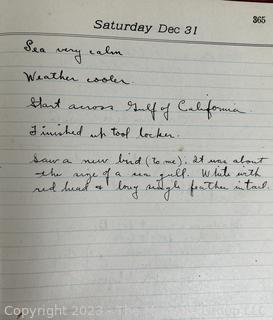 365
Saturday Dec 31
Sea very calm
Weather cooler.
Start across Gulf of California
Finished up tool locker.
Saw a new bird (to me). It was about
the size of a sea gull. White with
red head & long single feather in tail.
Copyright 2023